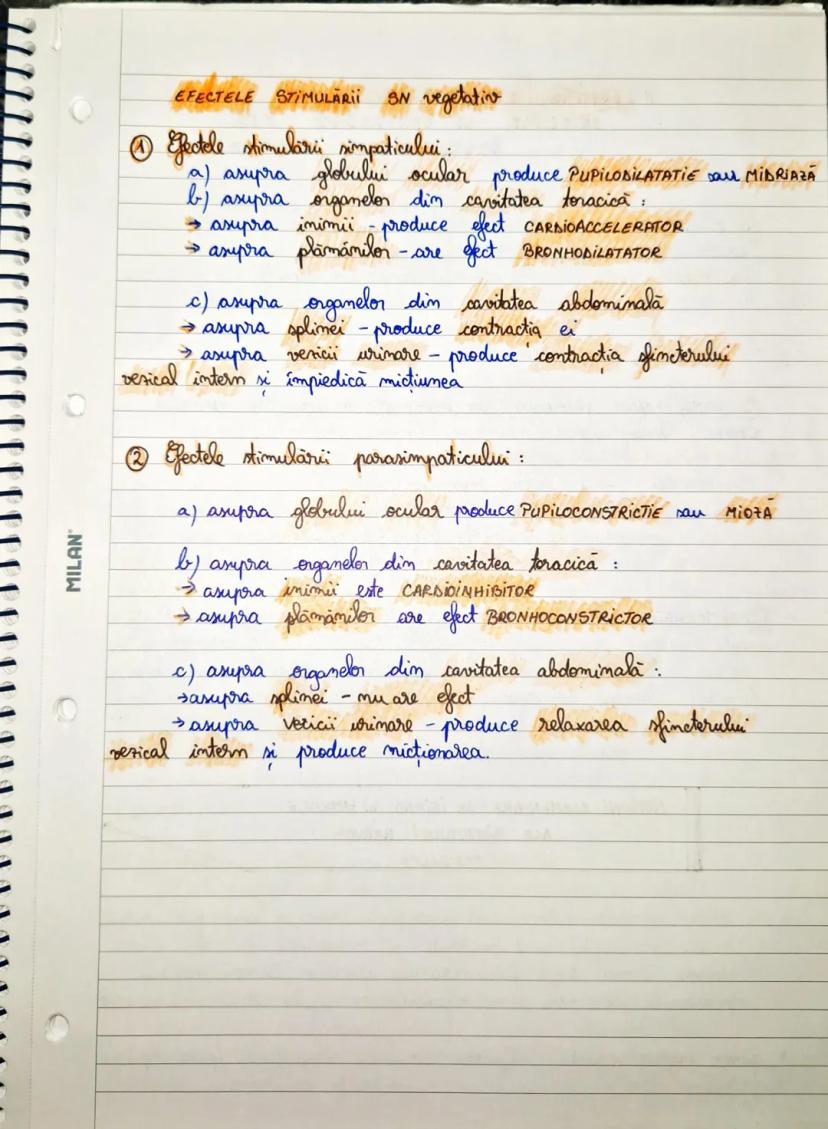 EFECTELE STIMULĂRII SN vegetativ
① Efectele stimulării simpaticului :
a) asupra globului ocular produce PUPILODILATAȚIE sau MIDRIAZĂ
b) asupra organelor din cavitatea toracică :
→ asupra inimii - produce efect CARDIOACCELERATOR
→ asupra plămânilor - are efect BRONHODILATATOR
c) asupra organelor din cavitatea abdominală
→ asupra splinei - produce contracția ei
→ asupra vezicii urinare - produce contracția sfincterului
vezical intern și împiedică micțiunea
② Efectele stimulării parasimpaticului :
a) asupra globului ocular produce PUPILOCONSTRICȚIE sau MIOZĂ
b) asupra organelor din cavitatea toracică :
→ asupra inimii este CARDIOINHIBITOR
→ asupra plămânilor are efect BRONHOCONSTRICTOR
c) asupra organelor din cavitatea abdominală :
→ asupra splinei - nu are efect
→ asupra vezicii urinare - produce relaxarea sfincterului
vezical intern și produce micționarea.
MILAN